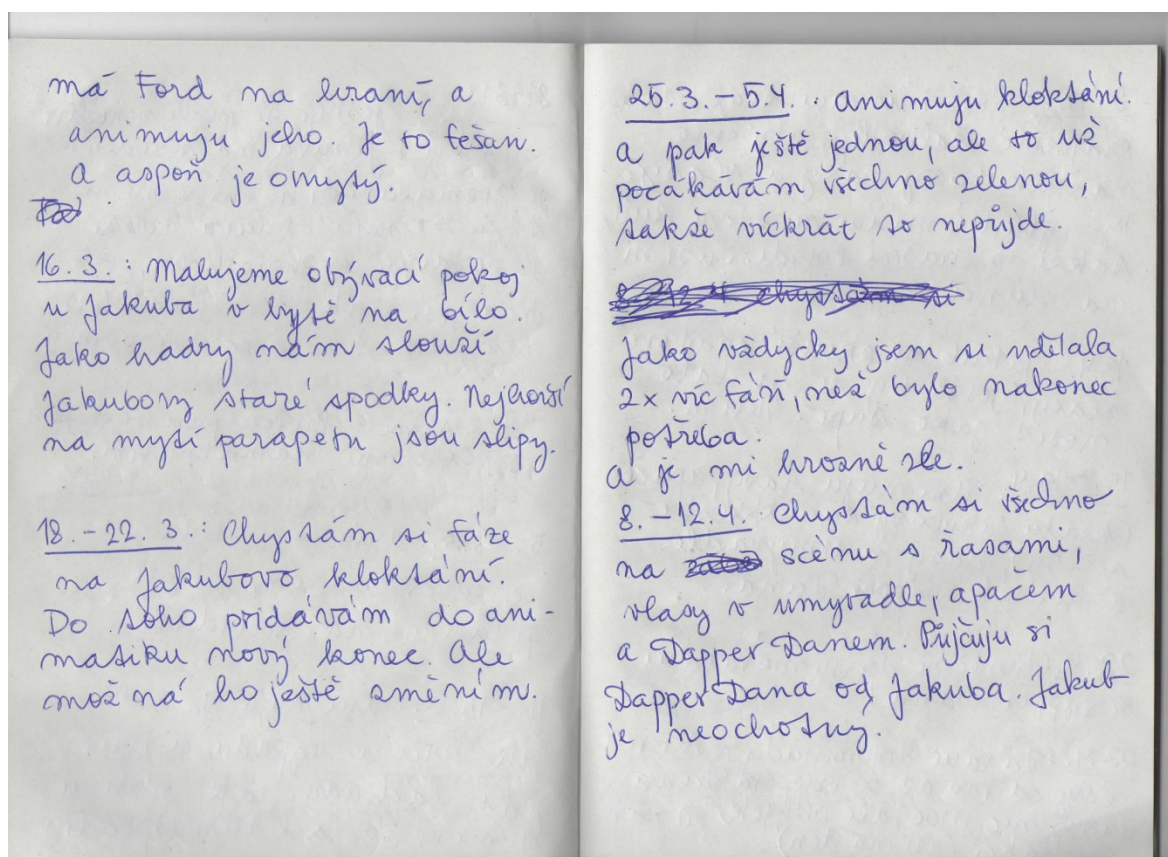 má Ford na hraní, a
animuju jeho. Je to fešan.
a aspoň je omytý.
16. 3. : Malujeme obývací pokoj
u Jakuba v bytě na bílo.
Jako hadry nám slouží
Jakubovy staré spodky. Nejhorší
na mytí parapetu jsou slipy.
18. - 22. 3. : Chystám si fáze
na Jakubovo kloktání.
Do toho přidávám do ani-
matiku nový konec. Ale
možná ho ještě změním.
25. 3. - 5. 4. : animuju kloktání.
a pak ještě jednou, ale to už
pocákávám všechno zelenou,
takže víckrát to nepůjde.
chystám si
Jako vždycky jsem si udělala
2x víc fází, než bylo nakonec
potřeba.
a je mi hrozně zle.
8. - 12. 4. Chystám si všechno
na scénu s řasami,
vlasy v umyvadle, apačem
a Dapper Danem. Půjčuju si
Dapper Dana od Jakuba. Jakub
je neochotný.